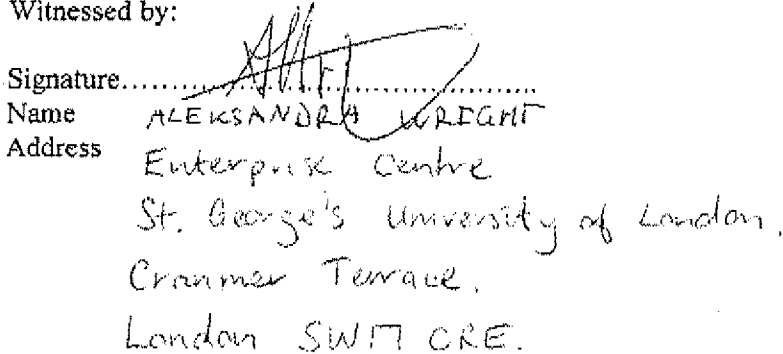 Witnessed by:
Signature..........................................
Name ALEKSANDRA WRIGHT
Address Enterprise Centre
St. George's University of London,
Cranmer Terrace,
London SW17 0RE.